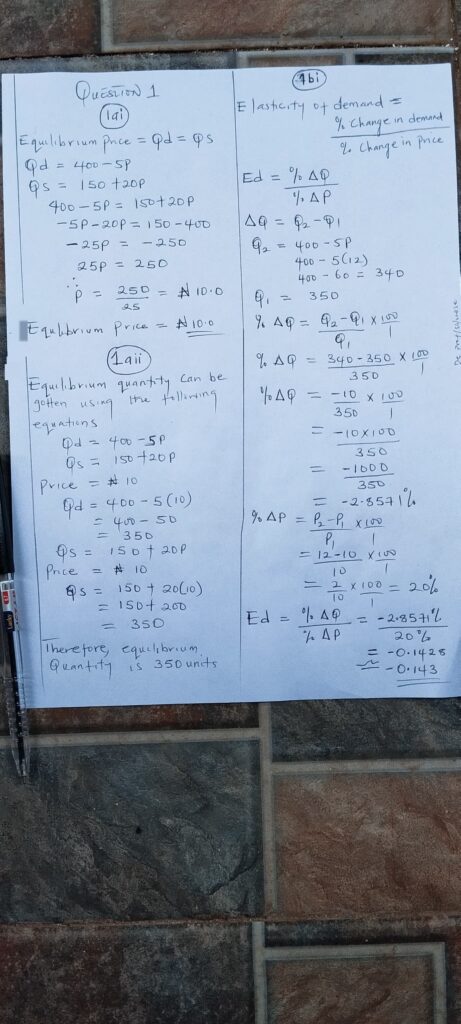 QUESTION 1
1ai
Equilibrium Price = Qd = Qs
Qd = 400-5P
Qs = 150+20P
400-5P = 150+20P
-5P-20P = 150-400
-25P = -250
25P = 250
∴ P = 250/25 = ₦10.0
Equilibrium Price = ₦10.0
1aii
Equilibrium quantity can be
gotten using the following
equations
Qd = 400-5P
Qs = 150+20P
Price = ₦10
Qd = 400-5(10)
= 400-50
= 350
Qs = 150+20P
Price = ₦10
Qs = 150+20(10)
= 150+200
= 350
Therefore, equilibrium
Quantity is 350 units
1bi
Elasticity of demand =
% Change in demand
% Change in Price
Ed = % ΔQ
% ΔP
ΔQ = Q2-Q1
Q2 = 400-5P
400-5(12)
400-60 = 340
Q1 = 350
% ΔQ = Q2-Q1/Q1 x 100/1
% ΔQ = 340-350/350 x 100/1
% ΔQ = -10/350 x 100/1
= -10x100/350
= -1000/350
= -2.8571%
% ΔP = P2-P1/P1 x 100/1
= 12-10/10 x 100/1
= 2/10 x 100/1 = 20%
Ed = % ΔQ/% ΔP = -2.8571%/20%
= -0.1428
≈ -0.143